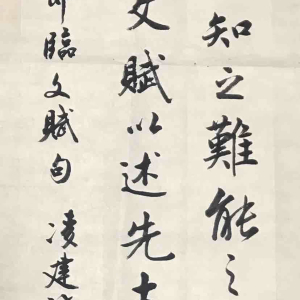 知之難能之
文賦以述先士
臨文賦句 凌建